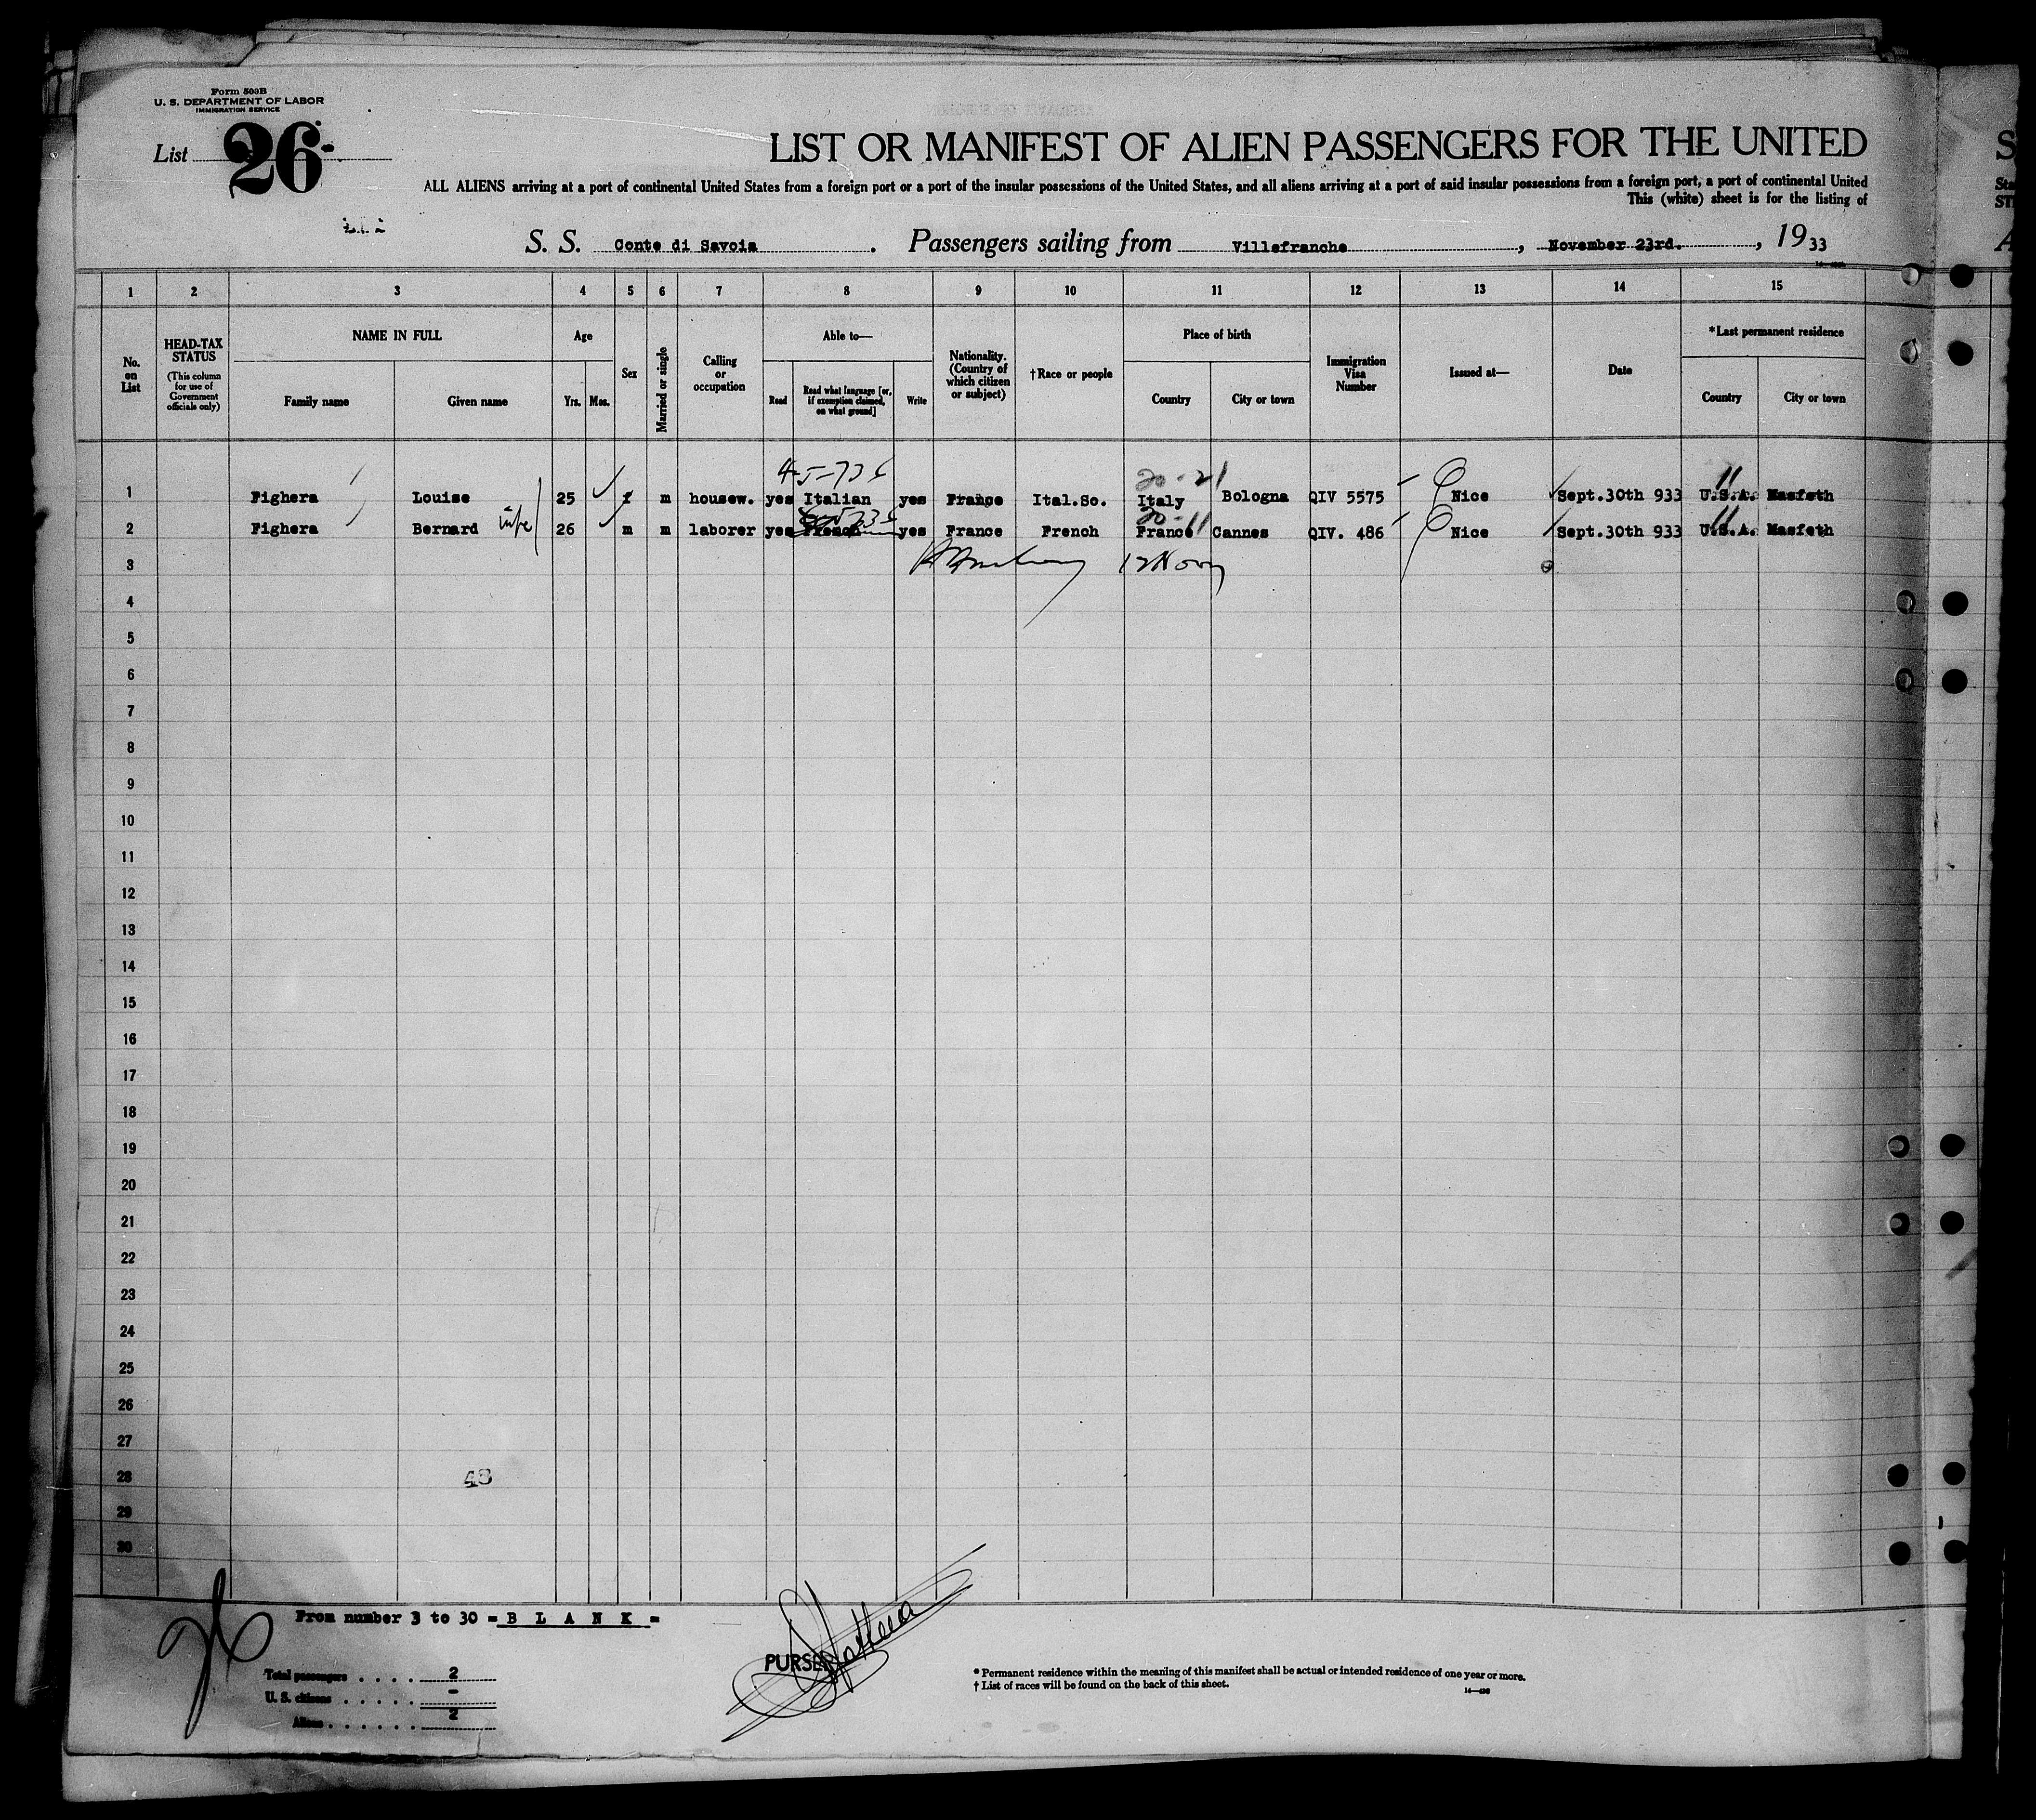 Form 500B
U. S. DEPARTMENT OF LABOR
IMMIGRATION SERVICE
List 26
LIST OR MANIFEST OF ALIEN PASSENGERS FOR THE UNITED
ALL ALIENS arriving at a port of continental United States from a foreign port or a port of the insular possessions of the United States, and all aliens arriving at a port of said insular possessions from a foreign port, a port of continental United
This (white) sheet is for the listing of
S. S. Conte di Savoia. Passengers sailing from Villefranche, November 23rd., 1933
1 2 3 4 5 6 7 8 9 10 11 12 13 14 15
No. on List
HEAD-TAX STATUS (This column for use of Government officials only)
NAME IN FULL
Family name
Given name
Age
Yrs. Mos.
Sex
Married or single
Calling or occupation
Able to—
Read
Read what language [or, if exemption claimed, on what ground]
Write
Nationality. (Country of which citizen or subject)
†Race or people
Place of birth
Country
City or town
Immigration Visa Number
Issued at—
Date
*Last permanent residence
Country
City or town
1 Fighera Louise 25 f m housew. yes Italian yes France Ital.So. Italy Bologna QIV 5575 Nice Sept.30th 933 U.S.A. Masfeth
2 Fighera Bernard 26 m m laborer yes French yes France French France Cannes QIV. 486 Nice Sept.30th 933 U.S.A. Masfeth
3
4
5
6
7
8
9
10
11
12
13
14
15
16
17
18
19
20
21
22
23
24
25
26
27
28 48
29
30
From number 3 to 30 = B L A N K =
Total passengers . . . . 2
U. S. citizens . . . . . -
Aliens . . . . . . 2
PURSER
* Permanent residence within the meaning of this manifest shall be actual or intended residence of one year or more.
† List of races will be found on the back of this sheet.